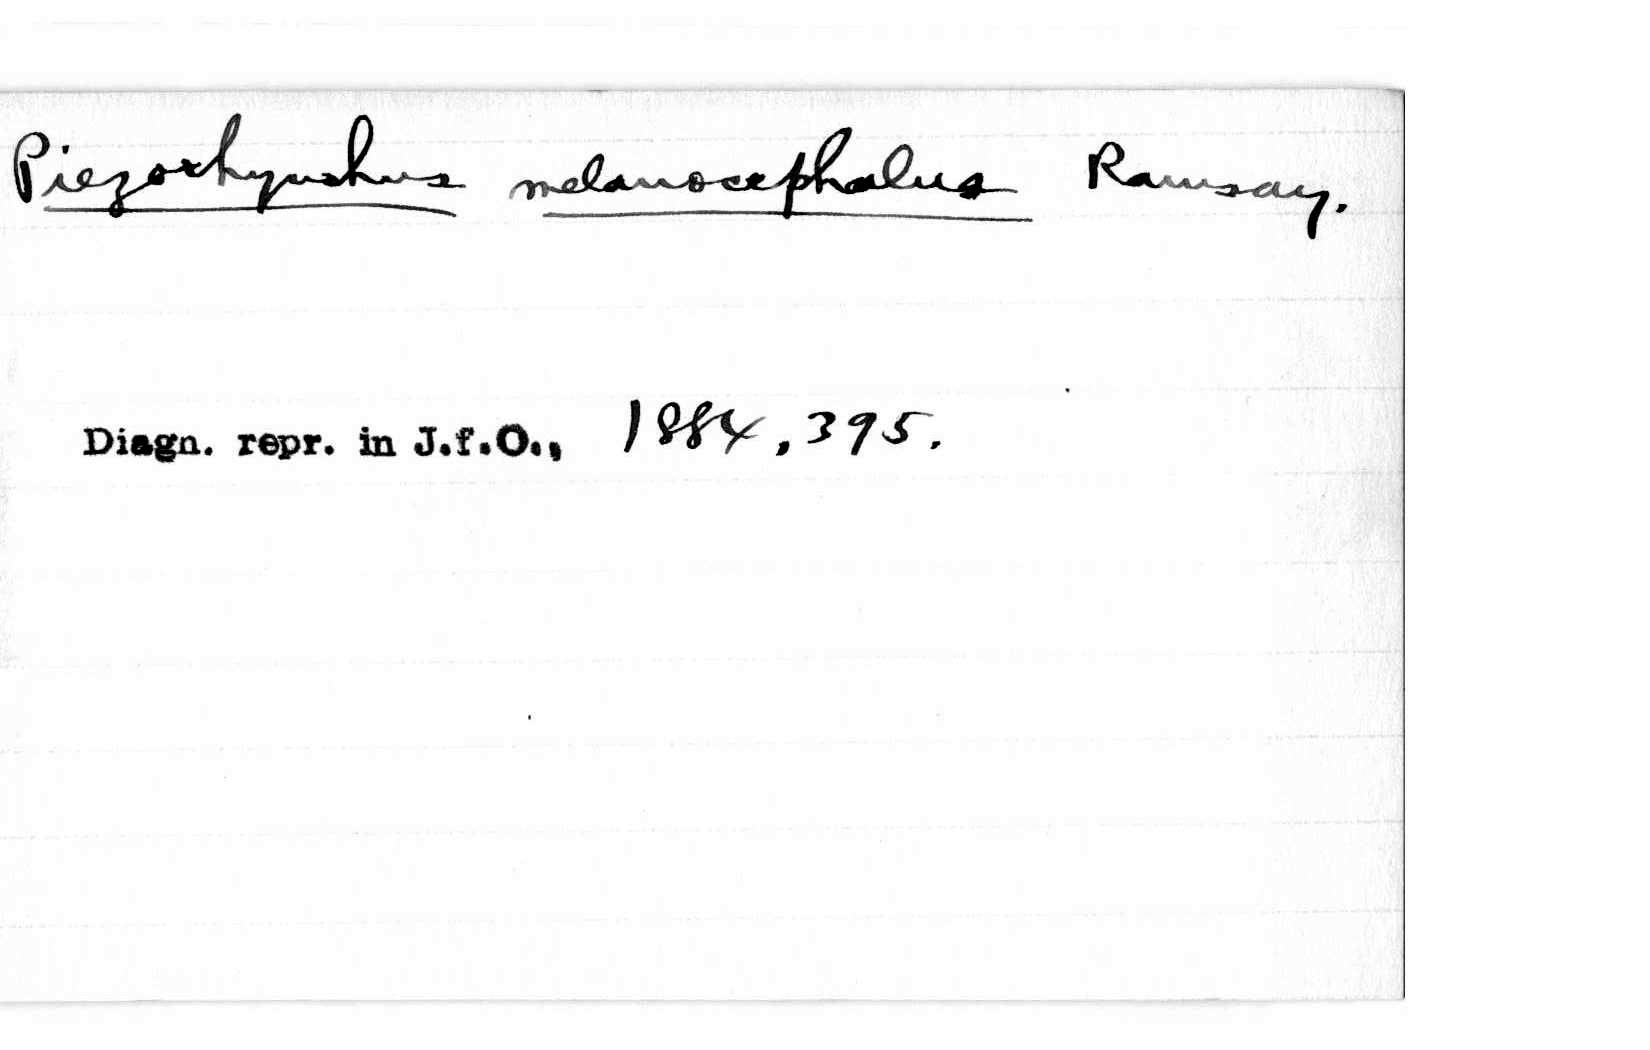 Piezorhynchus melanocephalus Ramsay.
Diagn. repr. in J.f.O., 1884, 395.